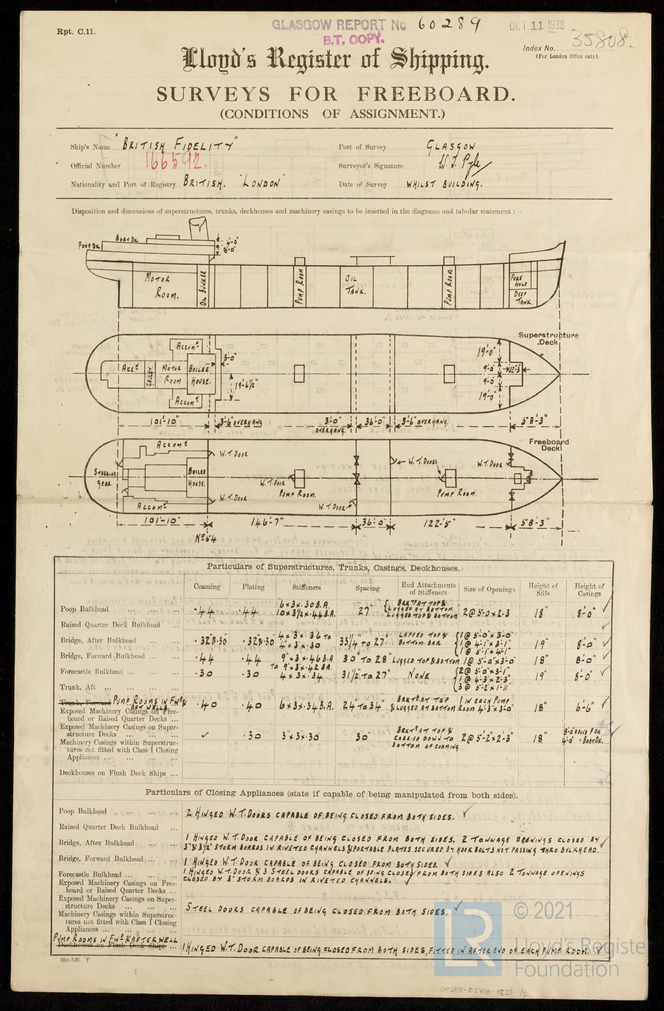 Rpt. C.11.
GLASGOW REPORT No 60289
B.T. COPY.
OCT 11 1930
Index No. 35808.
(For London Office only).
Lloyd's Register of Shipping.
SURVEYS FOR FREEBOARD.
(CONDITIONS OF ASSIGNMENT.)
Ship's Name "BRITISH FIDELITY"
Port of Survey GLASGOW
Official Number 166592.
Surveyor's Signature W. J. Pyle
Nationality and Port of Registry BRITISH. "LONDON"
Date of Survey WHILST BUILDING.
Disposition and dimensions of superstructures, trunks, deckhouses and machinery casings to be inserted in the diagrams and tabular statement:—
POOP DK. BOAT DK.
4'-0"
8'-0"
MOTOR ROOM.
OIL BUNKER
PUMP ROOM
OIL TANK.
PUMP ROOM
FORE HOLD
DEEP TANK
Superstructure Deck
ACCOMT
ACCT
GALLEY
MOTOR ROOM
BOILER HOUSE.
ACCOMT
3'-0"
19'-6½"
19'-0"
9'-0"
9'-0"
19'-0"
101'-10" 3'-6" OVERHANG 3'-0" OVERHANG 36'-0" 3'-6" OVERHANG 58'-3"
Freeboard Deck
ACCOMT
STEERING GEAR.
BOILER HOUSE.
ACCOMT
W.T. DOOR
W.T. DOOR
W.T. DOOR
PUMP ROOM.
W.T. DOOR
W.T. DOORS
W.T. DOOR
PUMP ROOM.
101'-10" 146'-7" 36'-0" 122'-5" 58'-3"
No 54
Particulars of Superstructures, Trunks, Casings, Deckhouses.
Coaming Plating Stiffeners Spacing End Attachments of Stiffeners Size of Openings Height of Sills Height of Casings
Poop Bulkhead .44 .44 6 x 3 x .30 B.A. 10 x 3½ x .44 B.A. 27" 2 @ 5-0 x 2-3 18" 8'-0" ✓
Raised Quarter Deck Bulkhead
Bridge, After Bulkhead .32 & .30 .32 & .30 4 x 3 x .36 TO 4 x 3 x .30 33¼ TO 27" LAPPED TOP & BOTTOM BAR 1 @ 5'-0" x 3'-0" 1 @ 4'-1" x 3'-1" 1 @ 5'-1" x 4'-1" 19" 8'-0" ✓
Bridge, Forward Bulkhead .44 .44 9" x 3 x .46 B.A TO 9 x 3 x .42 B.A. 30" TO 28" LUGGED TOP & BOTTOM 1 @ 5'-0" x 3'-0" 18" 8'-0" ✓
Forecastle Bulkhead .30 .30 4 x 3 x .34 31½ TO 27" NONE 2 @ 5'-0" x 3'-1" 1 @ 4'-3 x 2-3 3 @ 5-2 x 1-11 19" 8'-0" ✓
Trunk, Aft
Trunk, Forward PUMP ROOMS IN FWD & AFT WELLS .40 .40 6 x 3 x .34 B.A. 24" TO 34 BRKT AT TOP & LUGGED AT BOTTOM 1 IN EACH PUMP ROOM 4-3 x 3-0" 18" 6'-6" ✓
Exposed Machinery Casings on Freeboard or Raised Quarter Decks
Exposed Machinery Casings on Superstructure Decks ✓ .30 3 x 3 x .30 30" BRKT AT TOP & CARRIED DOWN TO BOTTOM OF COAMING 2 @ 5'-2 x 2-3" 18"
Machinery Casings within Superstructures not fitted with Class I Closing Appliances
Deckhouses on Flush Deck Ships
Particulars of Closing Appliances (state if capable of being manipulated from both sides).
Poop Bulkhead 2 HINGED W.T. DOORS CAPABLE OF BEING CLOSED FROM BOTH SIDES. ✓
Raised Quarter Deck Bulkhead
Bridge, After Bulkhead 1 HINGED W.T. DOOR CAPABLE OF BEING CLOSED FROM BOTH SIDES. 2 TONNAGE OPENINGS CLOSED BY
3" & 3½" STORM BOARDS IN RIVETED CHANNELS & PORTABLE PLATES SECURED BY HOOK BOLTS NOT PASSING THRO BULKHEAD.
Bridge, Forward Bulkhead 1 HINGED W.T. DOOR CAPABLE OF BEING CLOSED FROM BOTH SIDES ✓
Forecastle Bulkhead 1 HINGED W.T. DOOR & 3 STEEL DOORS CAPABLE OF BEING CLOSED FROM BOTH SIDES ALSO 2 TONNAGE OPENINGS
CLOSED BY 3" STORM BOARDS IN RIVETED CHANNELS. ✓
Exposed Machinery Casings on Freeboard or Raised Quarter Decks
Exposed Machinery Casings on Superstructure Decks STEEL DOORS CAPABLE OF BEING CLOSED FROM BOTH SIDES. ✓
Machinery Casings within Superstructures not fitted with Class I Closing Appliances
PUMP ROOMS IN FWD & AFTER WELL
Deckhouses on Flush Deck Ships 1 HINGED W.T. DOOR CAPABLE OF BEING CLOSED FROM BOTH SIDES, FITTED IN AFTER END OF EACH PUMP ROOM. ✓
© 2021
LR
Lloyd's Register
Foundation